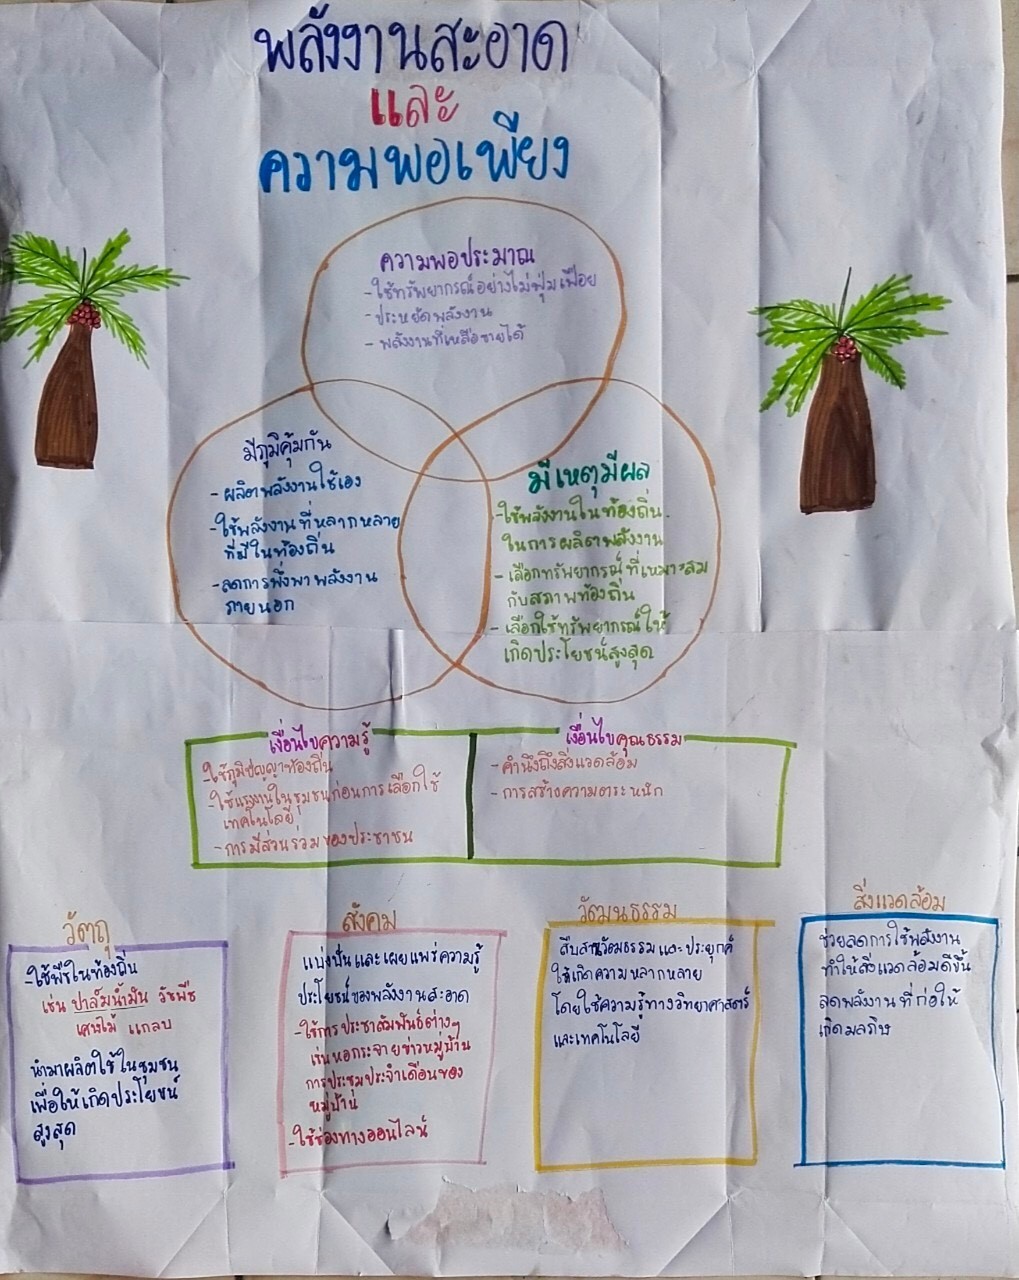 พลังงานสะอาด
และ
ความพอเพียง
ความพอประมาณ
- ใช้ทรัพยากรอย่างไม่ฟุ่มเฟือย
- ประหยัดพลังงาน
- พลังงานที่เหลือขายได้
มีภูมิคุ้มกัน
- ผลิตพลังงานใช้เอง
- ใช้พลังงานที่หลากหลาย
ที่มีในท้องถิ่น
- ลดการพึ่งพาพลังงาน
ภายนอก
มีเหตุมีผล
- ใช้พลังงานในท้องถิ่น
ในการผลิตพลังงาน
- เลือกทรัพยากรที่เหมาะสม
กับสภาพท้องถิ่น
- เลือกใช้ทรัพยากรให้
เกิดประโยชน์สูงสุด
เงื่อนไขความรู้
- ใช้ภูมิปัญญาท้องถิ่น
- ใช้แรงงานในชุมชนก่อนการเลือกใช้
เทคโนโลยี
- การมีส่วนร่วมของประชาชน
เงื่อนไขคุณธรรม
- คำนึงถึงสิ่งแวดล้อม
- การสร้างความตระหนัก
วัตถุ
- ใช้พืชในท้องถิ่น
เช่น ปาล์มน้ำมัน วัชพืช
เศษไม้ แกลบ
นำมาผลิตใช้ในชุมชน
เพื่อให้เกิดประโยชน์
สูงสุด
สังคม
แบ่งปันและเผยแพร่ความรู้
ประโยชน์ของพลังงานสะอาด
- ใช้การประชาสัมพันธ์ต่างๆ
เช่นหอกระจายข่าวหมู่บ้าน
การประชุมประจำเดือนของ
หมู่บ้าน
- ใช้ช่องทางออนไลน์
วัฒนธรรม
สืบสานวัฒธรรมและประยุกต์
ให้เกิดความหลากหลาย
โดยใช้ความรู้ทางวิทยาศาสตร์
และเทคโนโลยี
สิ่งแวดล้อม
ช่วยลดการใช้พลังงาน
ทำให้สิ่งแวดล้อมดีขึ้น
ลดพลังงานที่ก่อให้
เกิดมลภิษ